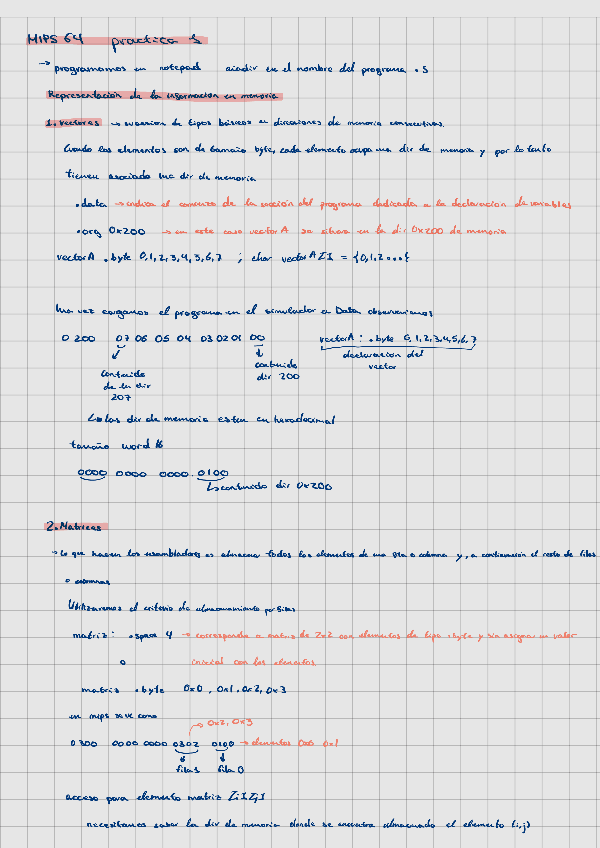 MIPS 64 practica 5
→ programamos en notepad añadir en el nombre del programa .s
Representación de la informacion en memoria
1. Vectores → sucesion de tipos básicos en direcciones de memoria consecutivas.
Cuando los elementos son de tamaño byte, cada elemento ocupa una dir de memoria y por lo tanto
tienen asociada una dir de memoria
.data → indica el comienzo de la sección del programa dedicada a la declaración de variables
.org 0x200 → en este caso vector A se situara en la dir 0x200 de memoria
vectorA . byte 0,1,2,3,4,5,6,7 ; char vectorA[] = {0,1,2...}
Una vez cargamos el programa en el simulador en Data observamos
0 200 07 06 05 04 03 02 01 00 vectorA: .byte 0,1,2,3,4,5,6,7
contenido de la dir 207
contenido dir 200
declaracion del vector
↳ las dir de memoria estan en hexadecimal
tamaño word 16
0000 0000 0000 0100
↳ contenido dir 0x200
2. Matrices
→ lo que hacen los ensambladores es almacenar todos los elementos de una fila o columna y, a continuación el resto de filas
o columnas
Utilizaremos el criterio de almacenamiento por filas
matriz: .space 4 → corresponde a matriz de 2x2 con elementos de tipo .byte y sin asignar un valor
o inicial con los elementos
matriz .byte 0x0, 0x1, 0x2, 0x3
en mips se ve como
→ 0x2, 0x3
0 300 0000 0000 0302 0100 → elementos 0x0 0x1
fila 1 fila 0
acceso para elemento matriz [i][j]
necesitamos saber la dir de memoria donde se encuentra almacenado el elemento (i,j)